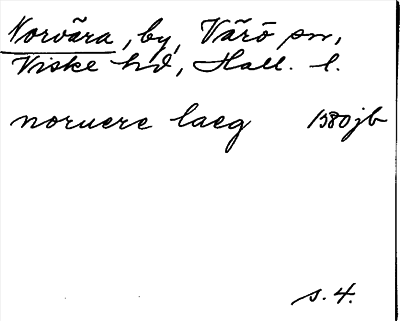 Norvära, by, Värö sn,
Viske hd, Hall. l.
noruere laeg 1580 jb
s. 4.